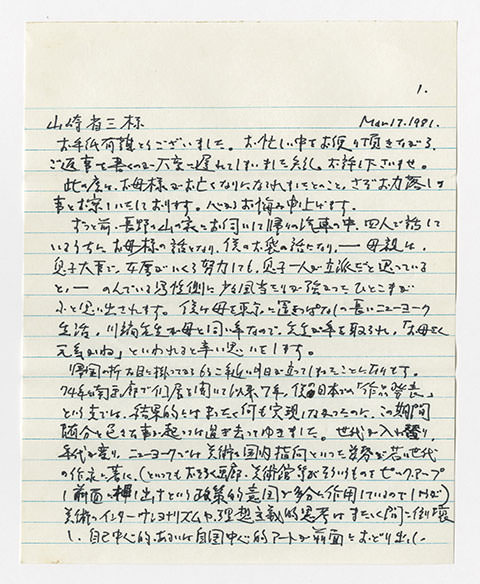 1.
山崎省三様 Mar. 17. 1981.
お手紙有難とうございました。お忙しい中をお便り頂きながら、
ご返事を書くのが大変に遅れてしまいました失礼、お許し下さいませ。
此の度は、お母様がお亡くなりになられましたとのこと、さぞお力落しの
事とお察しいたしております。心からお悔み申し上げます。
ずっと前、長野の山の家にお伺いして帰りの汽車の中、四人で話して
いるうちに、お母様の話となり、僕のお袋の話になり、── 母親は、
息子大事で、女房がいくら努力しても、息子一人が立派だと思っている
と、── のんでいる男性側に少々風当たりが強まったひとこまが
ふと思い出されます。僕も母を東京に置きっぱなしの長いニューヨーク
生活、川端先生が母と同い年なので、先生が手を取られ、「お母さん
元気かね」といわれると辛い思いをします。
帰国の折お目に掛ってからもう
74年 南画廊で個展を開いて以来7年、僕は日本では「作品発表」
という点では、結果的にはまったく何も実現しなかったのに、この期間
随分と色々な事が起っては過ぎ去ってゆきました。世代が入れ替り、
年代が変り、ニューヨークでは美術の国内指向といった姿勢が若い世代
の作家に著しく、(といってもおそらく画廊・美術館等がそういうものをピックアップ
し前面に押し出すという政策的意図が多分に作用しているのでしょうが)
美術のインターナショナリズムや理想主義的思考はまたたく間に倒壊
し、自己中心的、あるいは自国中心的アートが前面におどり出し、